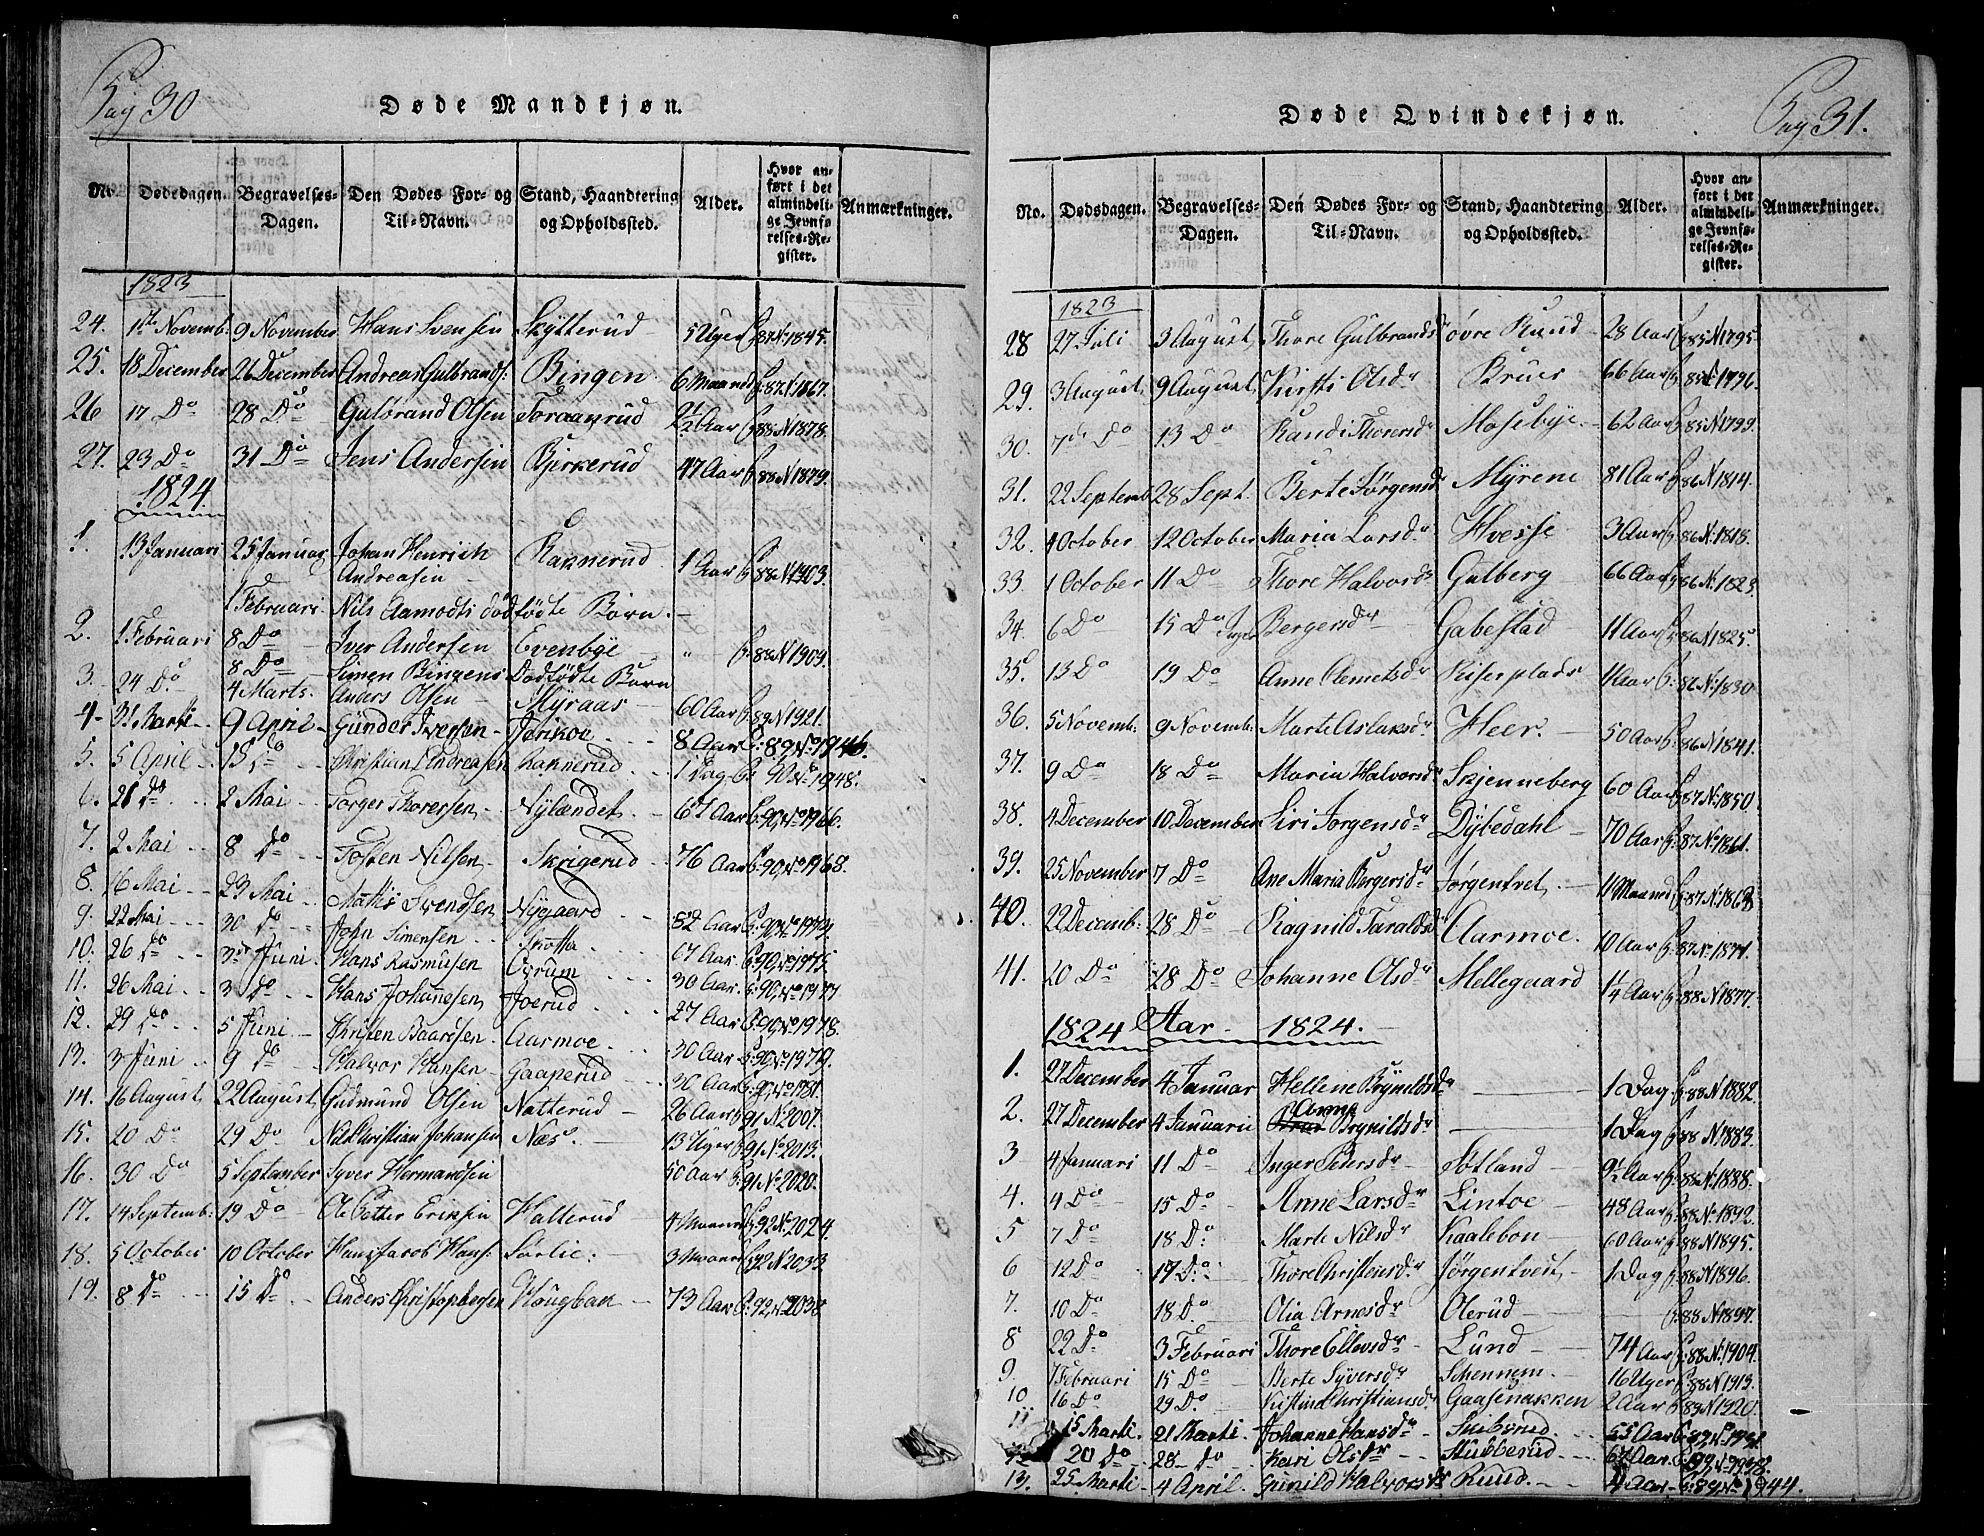 Pag 30
Døde Mandkjøn.
No. Dødedagen. Begravelses-Dagen. Den Dødes For- og Til-Navn. Stand, Haandtering og Opholdssted. Alder. Hvor anført i det almindelige Jevnførelses-Register. Anmærkninger.
1823
24. 1ste Novemb: 9 November Hans Svensen Skytterud 5 Uger P. 87 N. 1845.
25. 18 December 26 December Andreas Gulbrands: Bingen 6 Maaned P. 87 N. 1867.
26 17 Do 28 Do Gulbrand Olsen 2½ Aar P. 88 N. 1878.
27. 23 Do 31 Do Jens Andersen Bjerkerud 47 Aar P. 88 N. 1879.
1824
1. 13 Januari 25 Januar Johan Henrich Rakkerud 1 Aar P. 88 N. 1903.
Andreasen
1 Februari Nils Aamodts dødfødte Børn.
2. 1 Februari 8 Do Iver Andersen Evenbye " P. 88 N. 1909.
8 Do Simen Bingens Dødfødte Barn
3. 24 Do 4 Marts. Anders Olsen Myraas 60 Aar P. 89 N. 1921.
4. 31 Marti 9 April Gunder Iversen Jerikoe 8 Aar P. 89 No 1946.
5. 5 April 13 Do Christian Andreasen Rakkerud 1 Dag P. 90 No 1948.
6. 21 Do 2 Mai Torger Thoresen Nylændet 67 Aar P. 90 No 1966.
7. 2 Mai 8 Do Tosten Nilsen Skrigerud 76 Aar P. 90 No 1968.
8. 16 Mai 23 Mai Svendsen Nygaard 82 Aar P. 90 No
9. 22 Mai 30 Do John Simensen Skotta 67 Aar P. 90 No 1975.
10. 26 Do 3die Juni Hans Rasmusen 30 Aar P. 90 No 1977
11. 26 Mai 3 Do Hans Johannesen Joerud 27 Aar P. 90 No 1978.
12. 29 Do 5 Juni Christen Baardsen Aarmoe 30 Aar P. 90 No 1979.
13. 3 Juni 9 Do Halvor Hansen Gaaperud 30 Aar P. 90 No 1981.
14. 16 August 22 August Gudmund Olsen Natterud 26 Aar P. 91 N. 2007.
15. 20 Do 29 Do Nils Christian Johansen Næs 13 Uger P. 91 No 2013.
16. 30 Do 5 September Syver Hermandsen 50 Aar P. 91 No 2020.
17. 14 Septemb: 19 Do Ole Petter Eriksen Hallerud 4 Maaned P. 92 No 2024.
18. 5 October 10 October Hans Jacob Hans: Sørlie 3 Maaned P. 92 N. 2033
19. 8 Do 15 Do Anders Christophersen Hougbak 73 Aar P. 92 N. 2038
Pag 31.
Døde Qvindekjøn.
No. Dødsdagen. Begravelses-Dagen. Den Dødes For- og Til-Navn. Stand, Haandtering og Opholdssted. Alder. Hvor anført i det almindelige Jevnførelses-Register. Anmærkninger.
1823
28 27 Juli 3 August Thore Gulbrandsdr øvre Ruud 28 Aar P. 85 N. 1795.
29. 3 August 9 August Kirsti Olsdr Brues 66 Aar P. 85 N. 1796.
30. 7de Do 13 Do Randi Thoresdr Mosebye 62 Aar P. 85 N. 1799.
31. 22 Septemb 28 Sept. Berte Jørgensdr Myrene 81 Aar P. 86 N. 1814.
32. 4 October 12 October Maria Larsdr Hvesse 3 Aar P. 86 N. 1818.
33. 1 October 11 Do Thore Halvorsdr Gulberg 66 Aar P. 86 N. 1823
34. 6 Do 15 Do Inger Bergersdr Gabestad 11 Aar P. 86 N. 1825.
35. 13 Do 19 Do Anne Clemetsdr Kiserplads 1 Aar P. 86 N. 1830
36. 5 Novemb: 9 Novemb: Marte Aslaksdr Heer. 50 Aar P. 86 N. 1841.
37. 9 Do 18 Do Maria Halvorsdr Skjenneberg 60 Aar P. 87 N. 1850.
38. 4 December 10 December Siri Jorgensdr Dybedahl 70 Aar P. 87 N. 1861.
39. 25 November 7 Do Ane Maria Bergersdr Jørgentvet 11 Maaned P. 87 N. 1868
40. 22 Decemb: 28 Do Ragnild Taraldsdr Aarmoe. 10 Aar P. 87 N. 1871.
41. 20 Do 28 Do Johanne Olsdr Mellegaard 1¼ Aar P. 88 N. 1877.
1824 Aar 1824.
1. 27 December 4 Januar Hellene Brynildsdr 1 Dag P. 88 N. 1882.
2. 27 December 4 Januarii Anne Brynildsdr 1 Dag P. 88 N. 1883.
3 4 Januari 11 Do Inger Pedersdr Søtland 9½ Aar P. 88 N. 1888.
4. 4 Do 15 Do Anne Larsdr Lintoe 48 Aar P. 88 No 1892.
5 7 Do 18 Do Marte Nilsdr Kaalebon 60 Aar P. 88 N. 1895.
6 12 Do 17 Do Thore Christensdr Jørgentveit 1 Dag P. 88 N. 1896.
7. 10 Do 18 Do Olia Arnesdr Olerud P. 88 N. 1897.
8 22 Do 3 Februari Thore Ellevsdr Lund 74 Aar P. 88 N. 1904.
9. 7 Februari 15 Do Berte Syversdr Schennem. 16 Uger P. 88 N. 1913.
10 16 Do 29 Do Kistine Christiansdr Gaasenakken 2 Aar P. 89 N. 1920.
11 15 Marti 21 Marti Johanne Hansdr Skibsrud. 55 Aar P. 89 No
20 Do 28 Do Kari Olsdr Stubberud 67 Aar P. 89 No 1938.
13. 25 Marti 4 April Gunild Halvorsdr Ruud 4 Aar P. 89 No 1944.